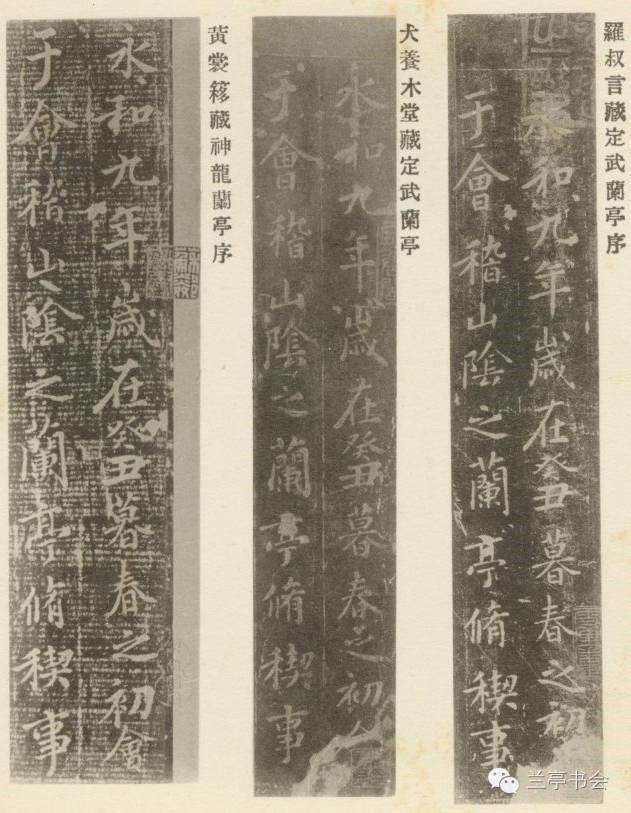 羅叔言藏定武蘭亭序
永和九年歲在癸丑暮春之初
于會稽山陰之蘭亭脩稧事
犬養木堂藏定武蘭亭
永和九年歲在癸丑暮春之初會
于會稽山陰之蘭亭脩稧事
黄裳簃藏神龍蘭亭序
永和九年歲在癸丑暮春之初會
于會稽山陰之蘭亭脩稧事
兰亭书会